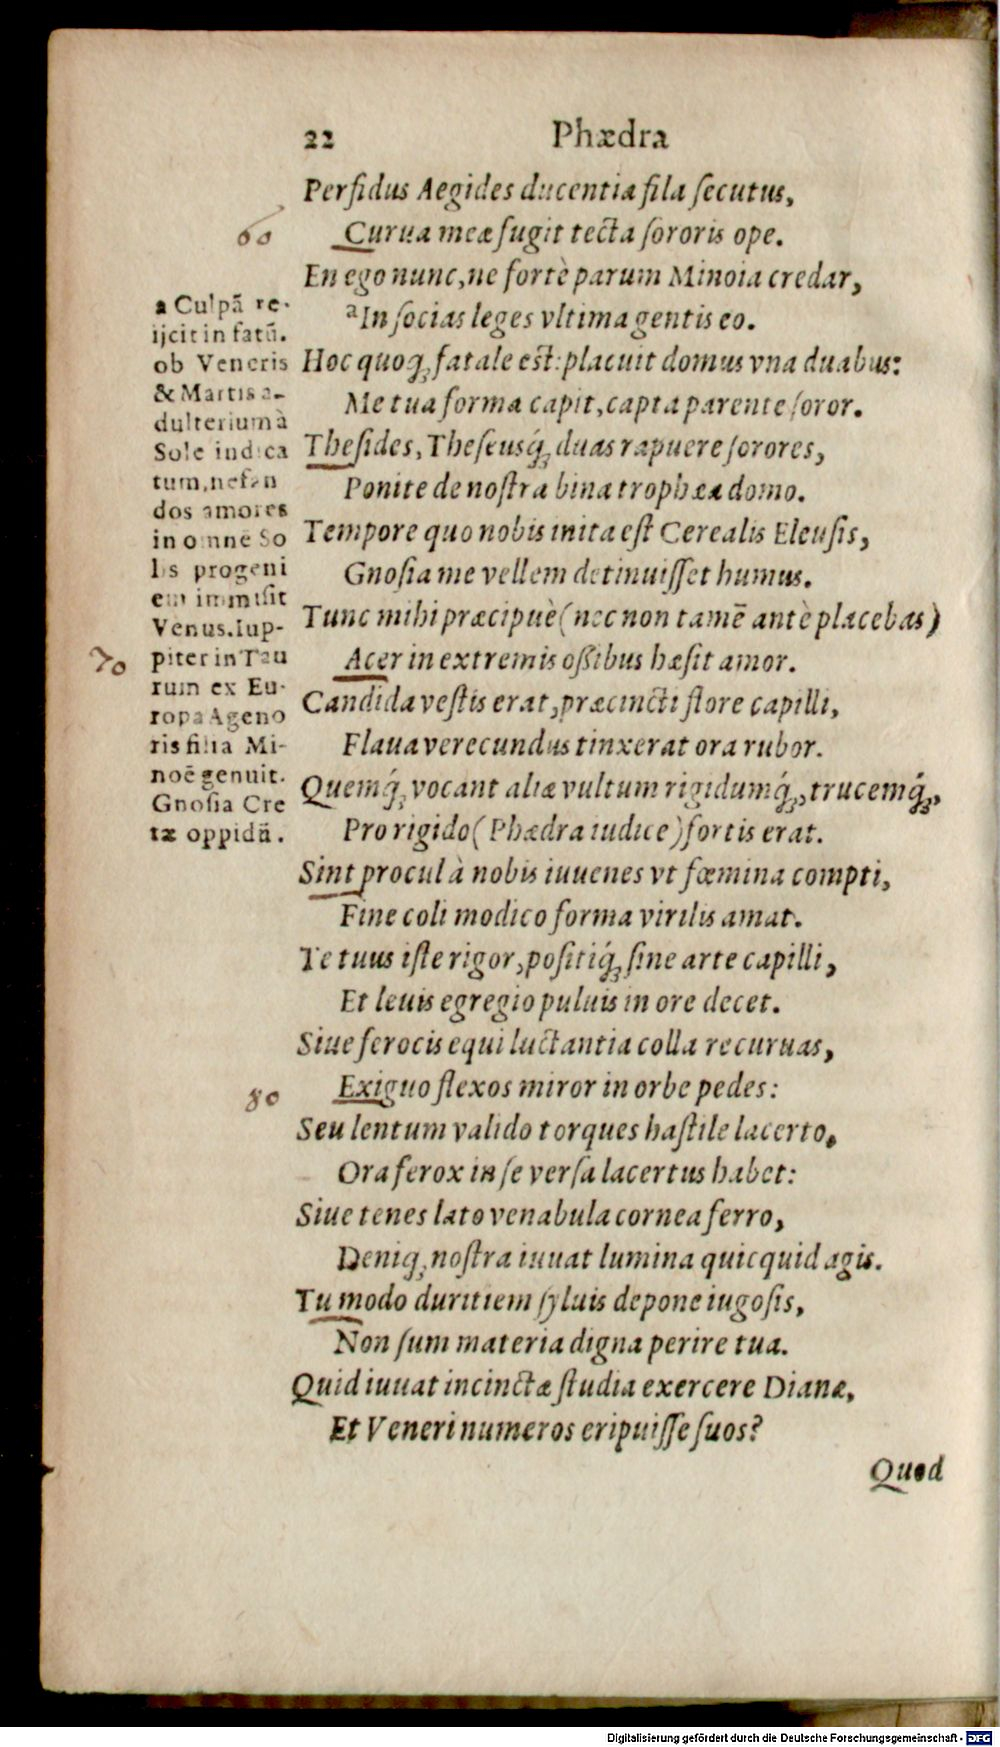 22 Phædra
Perfidus Aegides ducentia fila ſecutus,
60
Curua meæ fugit tecta ſororis ope.
En ego nunc, ne fortè parum Minoia credar,
ᵃIn ſocias leges vltima gentis eo.
Hoc quoq; fatale est: placuit domus vna duabus:
Me tua forma capit, capta parente ſoror.
Theſides, Theſeusq́; duas rapuere ſorores,
Ponite de noſtra bina trophæa domo.
Tempore quo nobis inita eſt Cerealis Eleuſis,
Gnoſia me vellem detinuiſſet humus.
Tunc mihi præcipuè (nec non tamē antè placebas)
70
Acer in extremis oſsibus hæſit amor.
Candida veſtis erat, præcincti flore capilli,
Flaua verecundus tinxerat ora rubor.
Quemq́; vocant aliæ vultum rigidumq́;, trucemq́;,
Pro rigido (Phædra iudice) fortis erat.
Sint procul à nobis iuuenes vt fœmina compti,
Fine coli modico forma virilis amat.
Te tuus iſte rigor, poſitiq́; ſine arte capilli,
Et leuis egregio puluis in ore decet.
Siue ferocis equi luctantia colla recuruas,
80
Exiguo flexos miror in orbe pedes:
Seu lentum valido torques haſtile lacerto,
Ora ferox in ſe verſa lacertus habet:
Siue tenes lato venabula cornea ferro,
Deniq; noſtra iuuat lumina quicquid agis.
Tu modo duritiem ſyluis depone iugoſis,
Non ſum materia digna perire tua.
Quid iuuat incinctæ ſtudia exercere Dianæ,
Et Veneri numeros eripuiſſe ſuos?
Quod
a Culpā re-
ijcit in fatū.
ob Veneris
& Martis a-
dulterium à
Sole indica
tum, nefan
dos amores
in omnē So
lis progeni
em immiſit
Venus. Iup-
piter in Tau
rum ex Eu-
ropa Ageno
ris filia Mi-
noē genuit.
Gnoſia Cre
tæ oppidū.
Digitalisierung gefördert durch die Deutsche Forschungsgemeinschaft - DFG